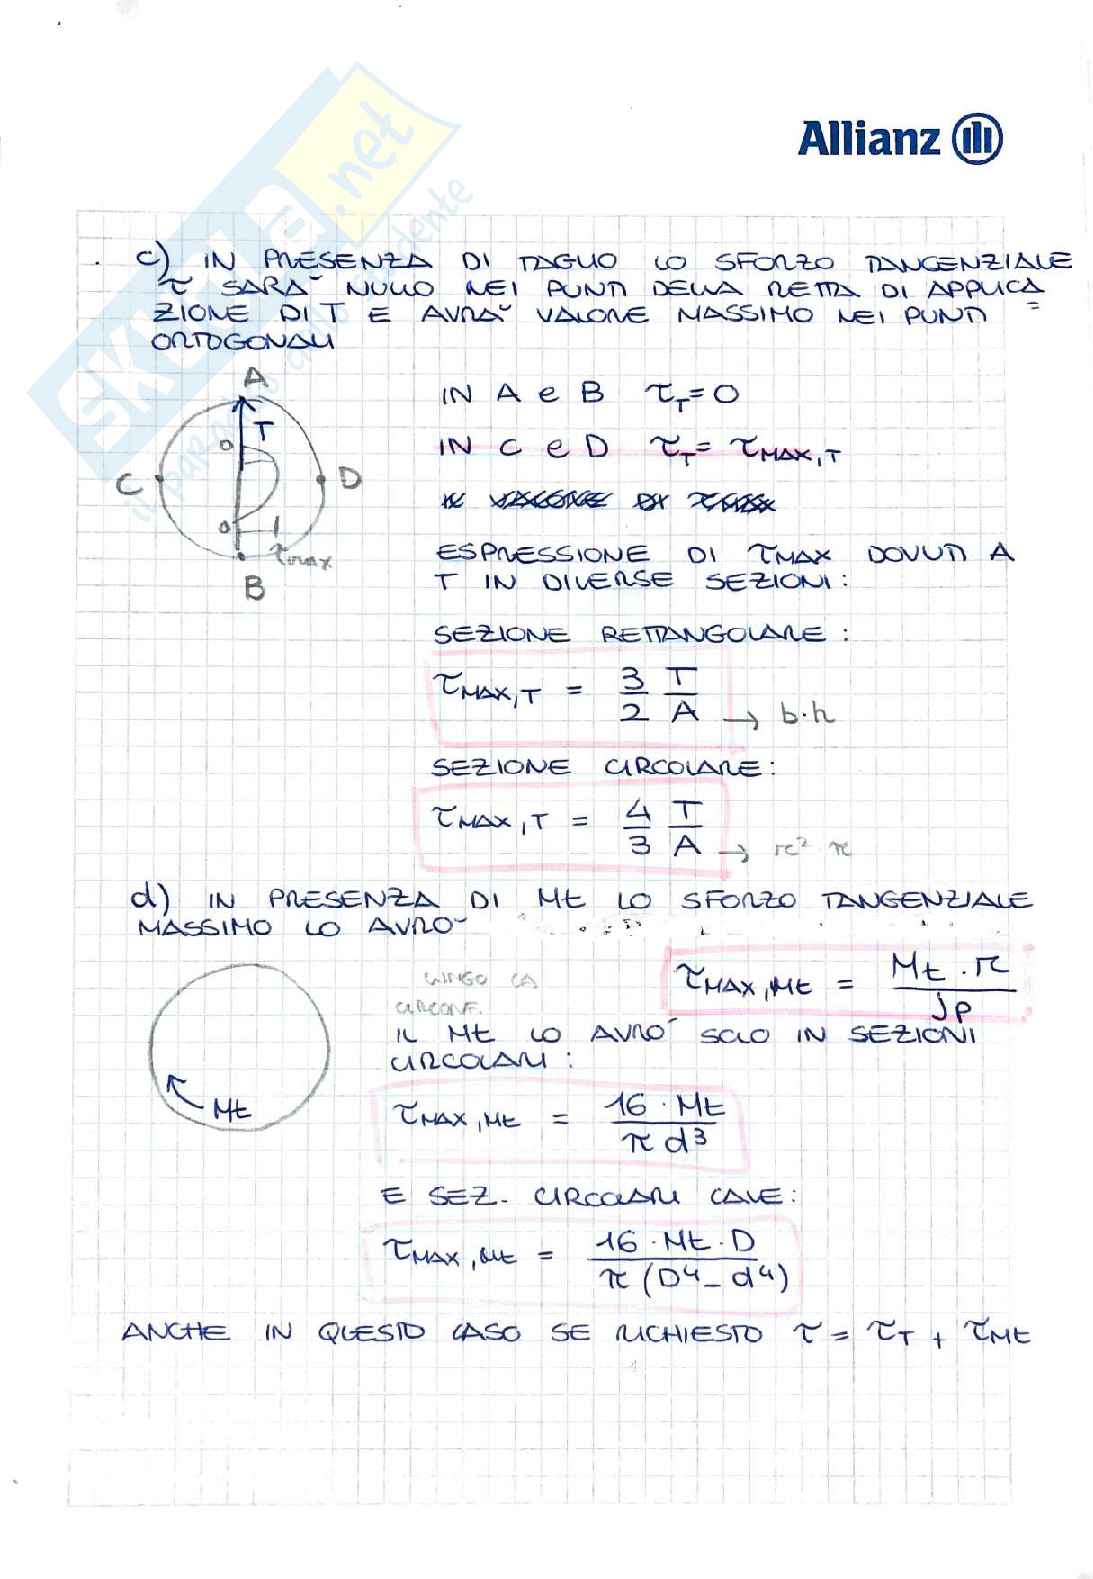 Allianz
c) IN PRESENZA DI TAGLIO LO SFORZO TANGENZIALE
τ SARA' NULLO NEI PUNTI DELLA RETTA DI APPLICA
ZIONE DI T E AVRA' VALORE MASSIMO NEI PUNTI =
ORTOGONALI
A
T
0
C
D
0
τmax
B
IN A e B τT = 0
IN C e D τT = τMAX,T
ESPRESSIONE DI τMAX DOVUTI A
T IN DIVERSE SEZIONI:
SEZIONE RETTANGOLARE:
τMAX,T = 3/2 T/A → b·h
SEZIONE CIRCOLARE:
τMAX,T = 4/3 T/A → r² π
d) IN PRESENZA DI Mt LO SFORZO TANGENZIALE
MASSIMO LO AVRO'
LUNGO LA
CIRCONF.
τMAX,Mt = Mt · r / Jp
IL Mt LO AVRO' SOLO IN SEZIONI
CIRCOLARI:
Mt
τMAX,Mt = 16 · Mt / π d³
E SEZ. CIRCOLARI CAVE:
τMAX,Mt = 16 · Mt · D / π (D⁴ - d⁴)
ANCHE IN QUESTO CASO SE RICHIESTO τ = τT + τMt